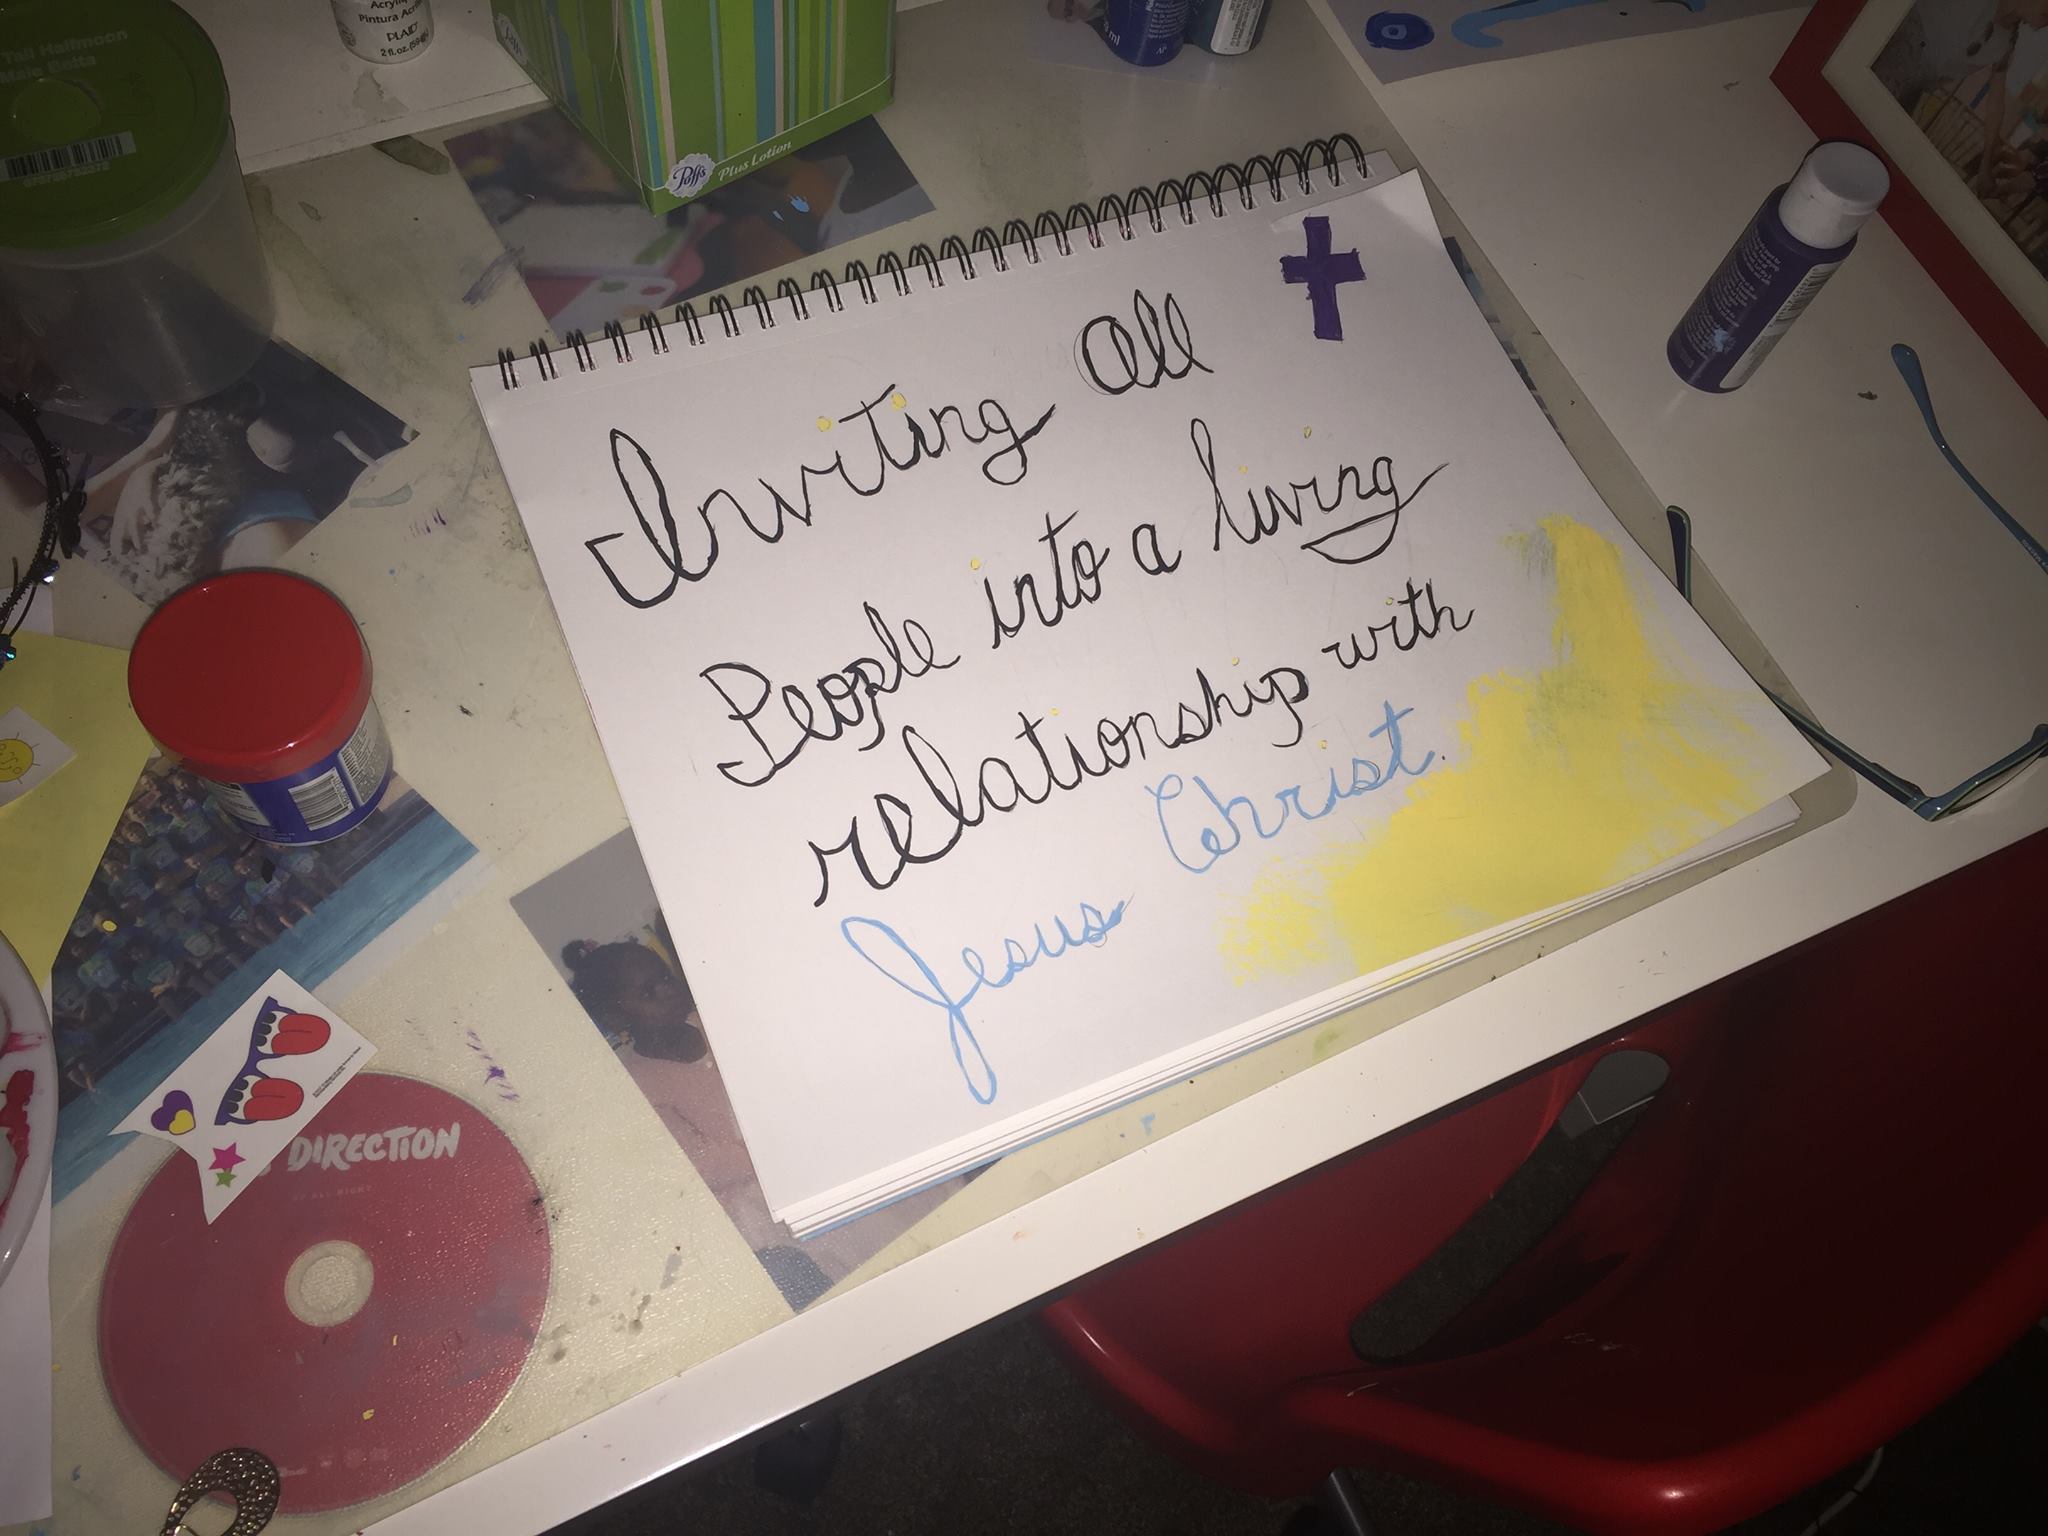 Tail Halfmoon
Male Betta
Pintura Acrílica
PLAID
2 fl. oz.
Puffs
Plus Lotion
Inviting All
People into a living
relationship with
Jesus Christ.
DIRECTION
UP ALL NIGHT